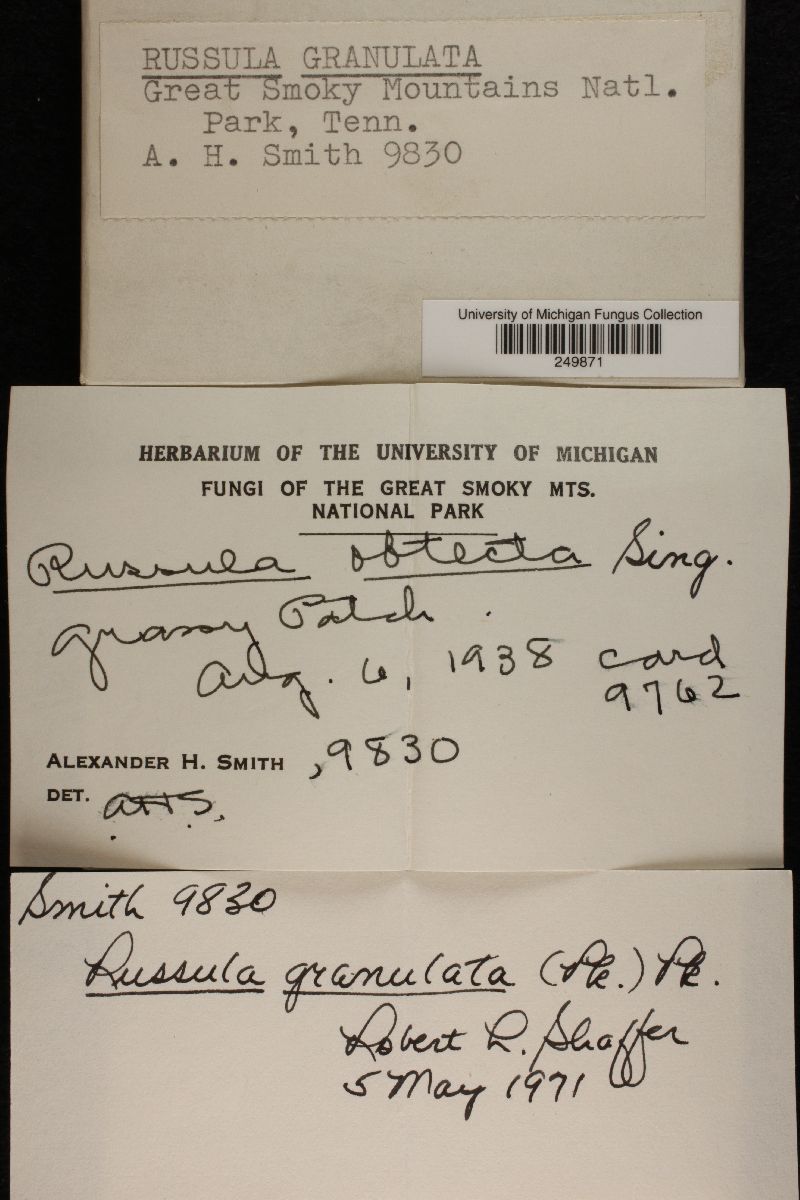 RUSSULA GRANULATA
Great Smoky Mountains Natl.
Park, Tenn.
A. H. Smith 9830
University of Michigan Fungus Collection
249871
HERBARIUM OF THE UNIVERSITY OF MICHIGAN
FUNGI OF THE GREAT SMOKY MTS.
NATIONAL PARK
Russula obtecta Sing.
grassy Patch.
Aug. 6, 1938 card
9762
ALEXANDER H. SMITH, 9830
DET. AHS.
Smith 9830
Russula granulata (Pk.) Pk.
Robert L. Shaffer
5 May 1971